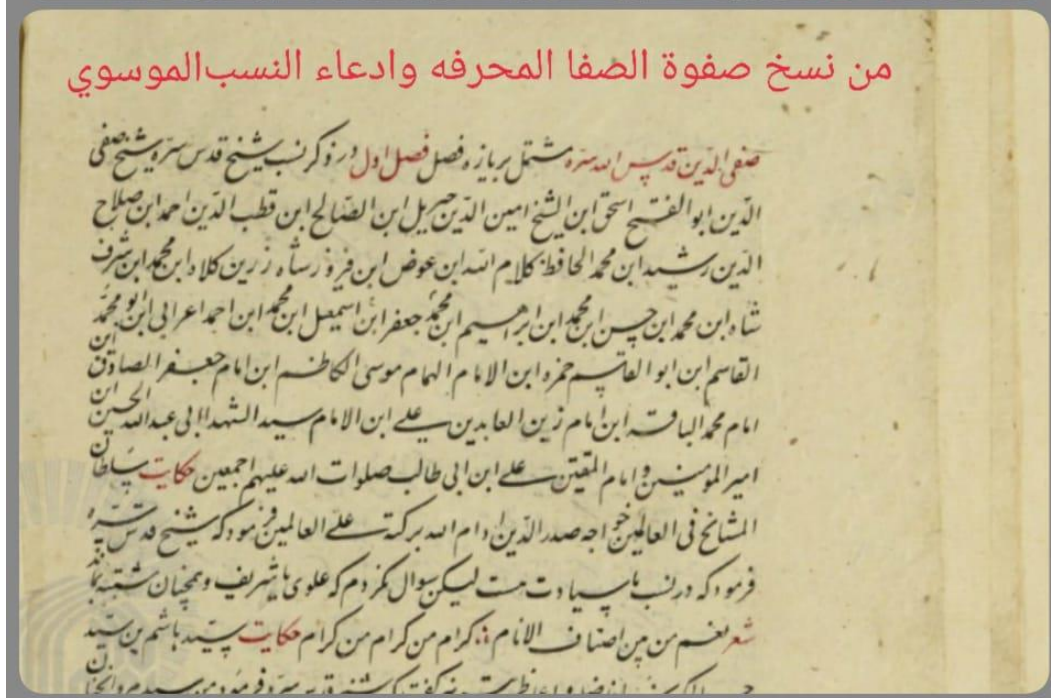 من نسخ صفوة الصفا المحرفه وادعاء النسب الموسوي
صفی الدین قدس الله سره مشتمل بر یازده فصل فصل اول در ذکر نسب شیخ قدس سره شیخ صفی
الدین ابو الفتح اسحق ابن الشیخ امین الدین جبریل ابن الصالح ابن قطب الدین احمد ابن صلاح
الدین رشید ابن محمد الحافظ کلام الله ابن عوض ابن فیروز شاه زرین کلاه ابن محمد ابن شرف
شاه ابن محمد ابن حسن ابن محمد ابن ابراهیم ابن محمد جعفر ابن اسمعیل ابن محمد ابن احمد اعرابی ابن ابو محمد
القاسم ابن ابو القاسم حمزه ابن الامام الهمام موسی الکاظم ابن امام جعفر الصادق ابن
امام محمد الباقر ابن امام زین العابدین علی ابن الامام سید الشهدا ابی عبد الله الحسین ابن
امیر المؤمنین و امام المتقین علی ابن ابی طالب صلوات الله علیهم اجمعین حکایت سلطان
المشایخ فی العالمین خواجه صدر الدین ادام الله برکته علی العالمین فرمود که شیخ قدس سره
فرمود که در نسب ما سیادت هست لیکن سوال نکردم که علوی یا شریف و همچنان مشتبه بماند
شعر نعم من بین اصناف الانام کرام من کرام من کرام حکایت سید هاشم بن سید
حسن